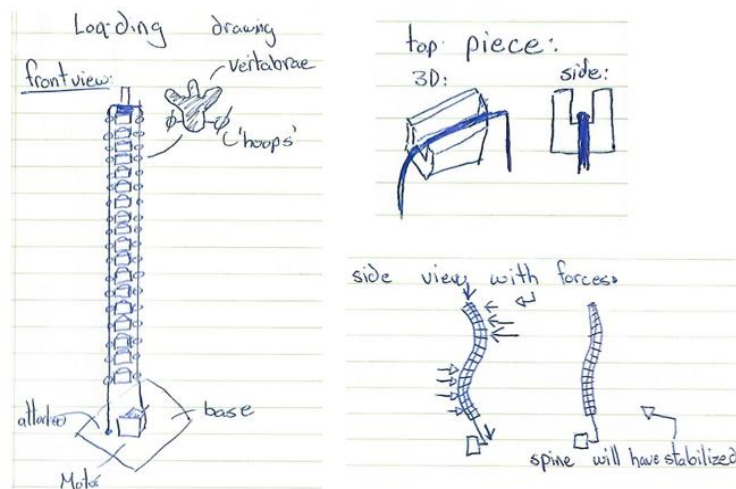 Loading drawing
front view:
vertabrae
'hoops'
base
Motor
top piece:
3D:
side:
side view with forces:
spine will have stabilized